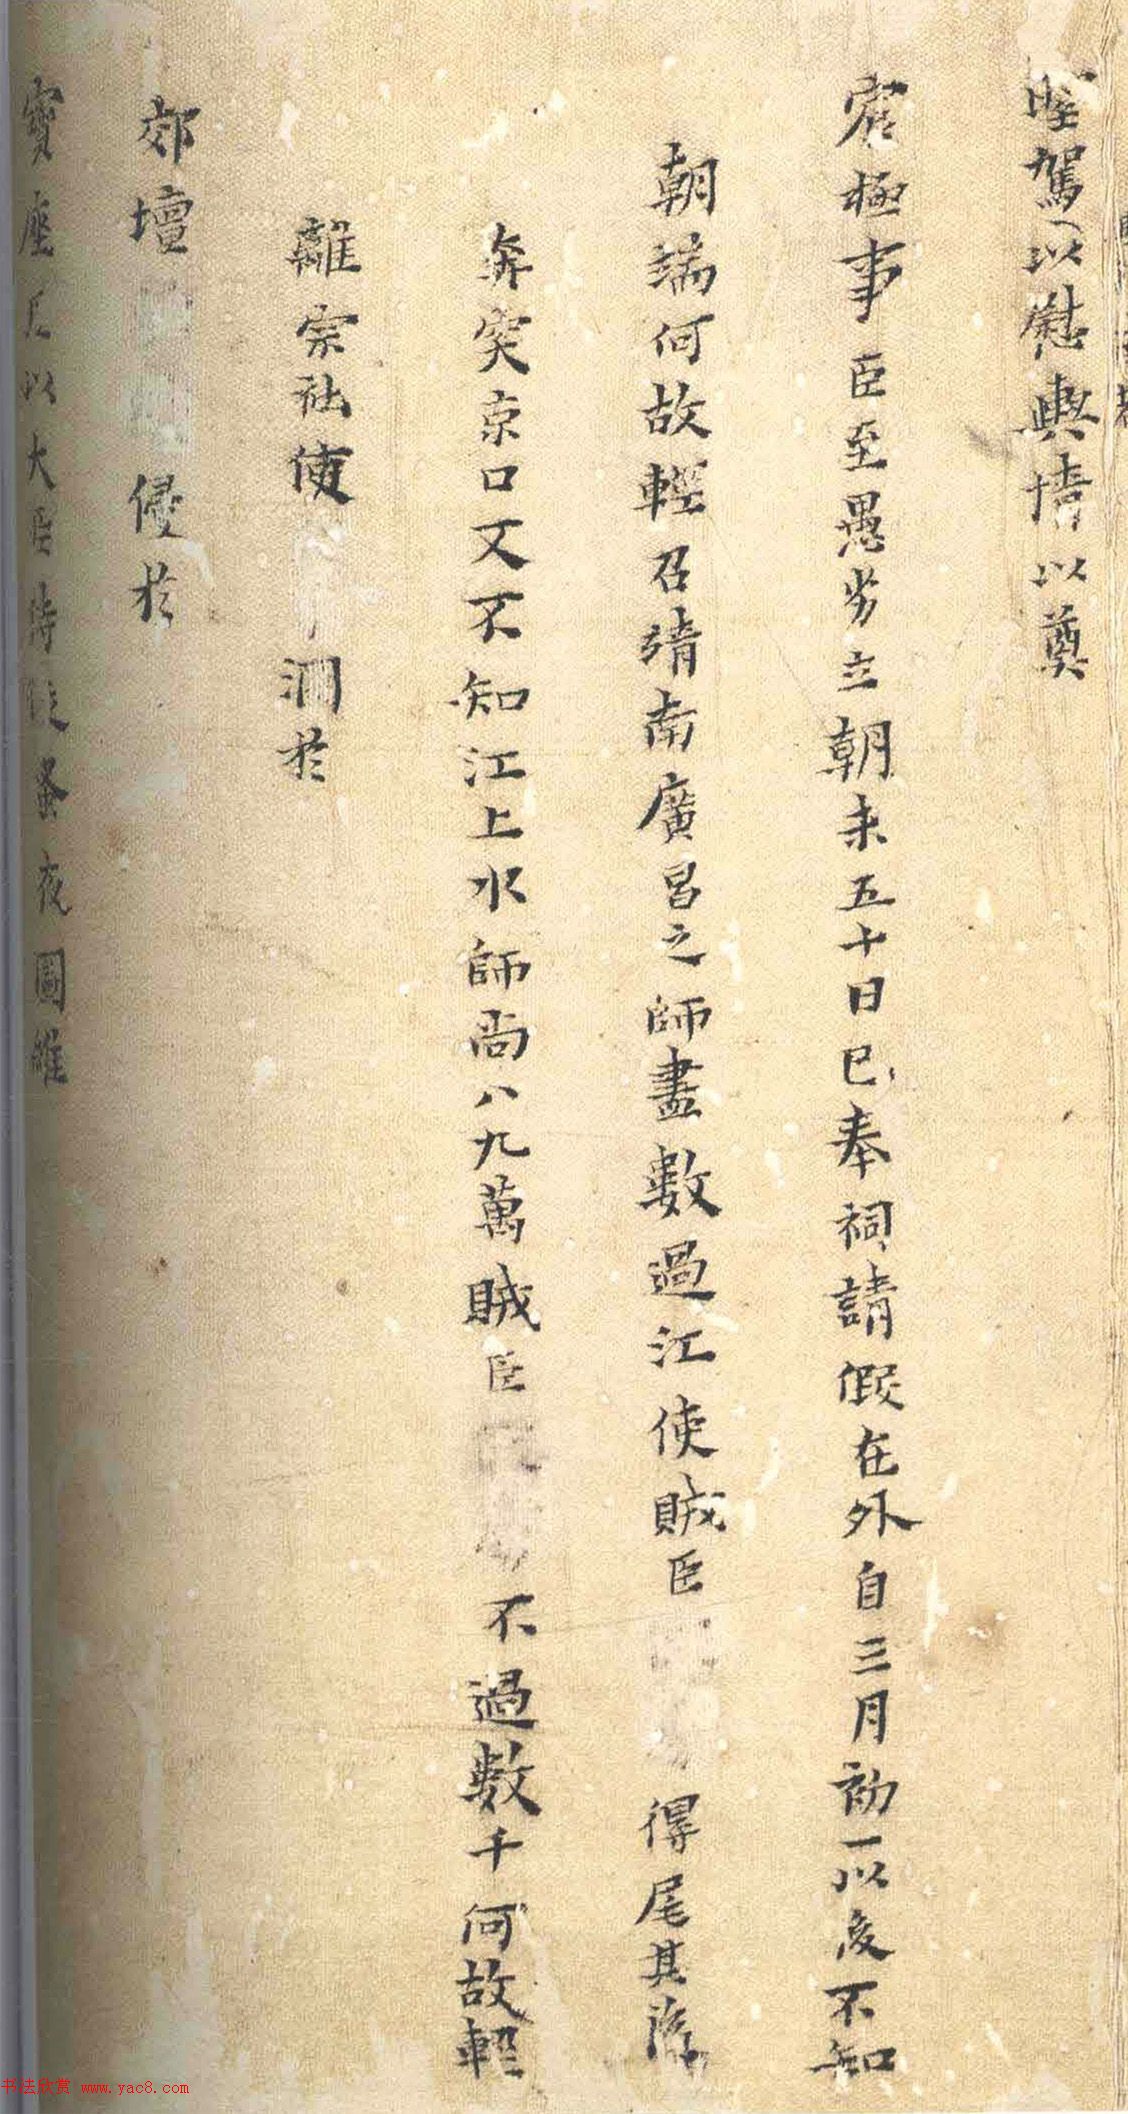 駐駕以慰輿情以奠
宸極事臣至愚劣立朝未五十日已奉祠請假在外自三月初一以後不知
朝端何故輕召靖南廣昌之師盡數過江使賊臣得尾其後
奔突京口又不知江上水師尚八九萬賊臣不過數千何故輕
離宗社使淵於
郊壇侵於
寶座臣以大臣待從蚤夜圖維
书法欣赏 www.yac8.com